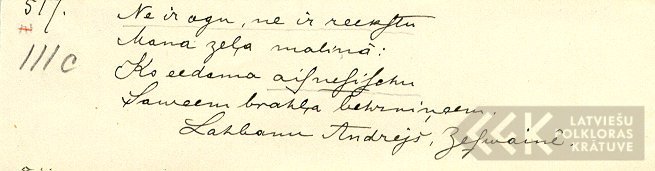 517.
Ne ir ogu, ne ir reekſtu
IIIc
Mana zeļa maliņâ:
Ko eedama aiſneſiſchu
Saweem brahļa behrniņeem.
Lahbanu Andrejs, Zeſwainê.
LATVIEŠU
FOLKLORAS
KRĀTUVE